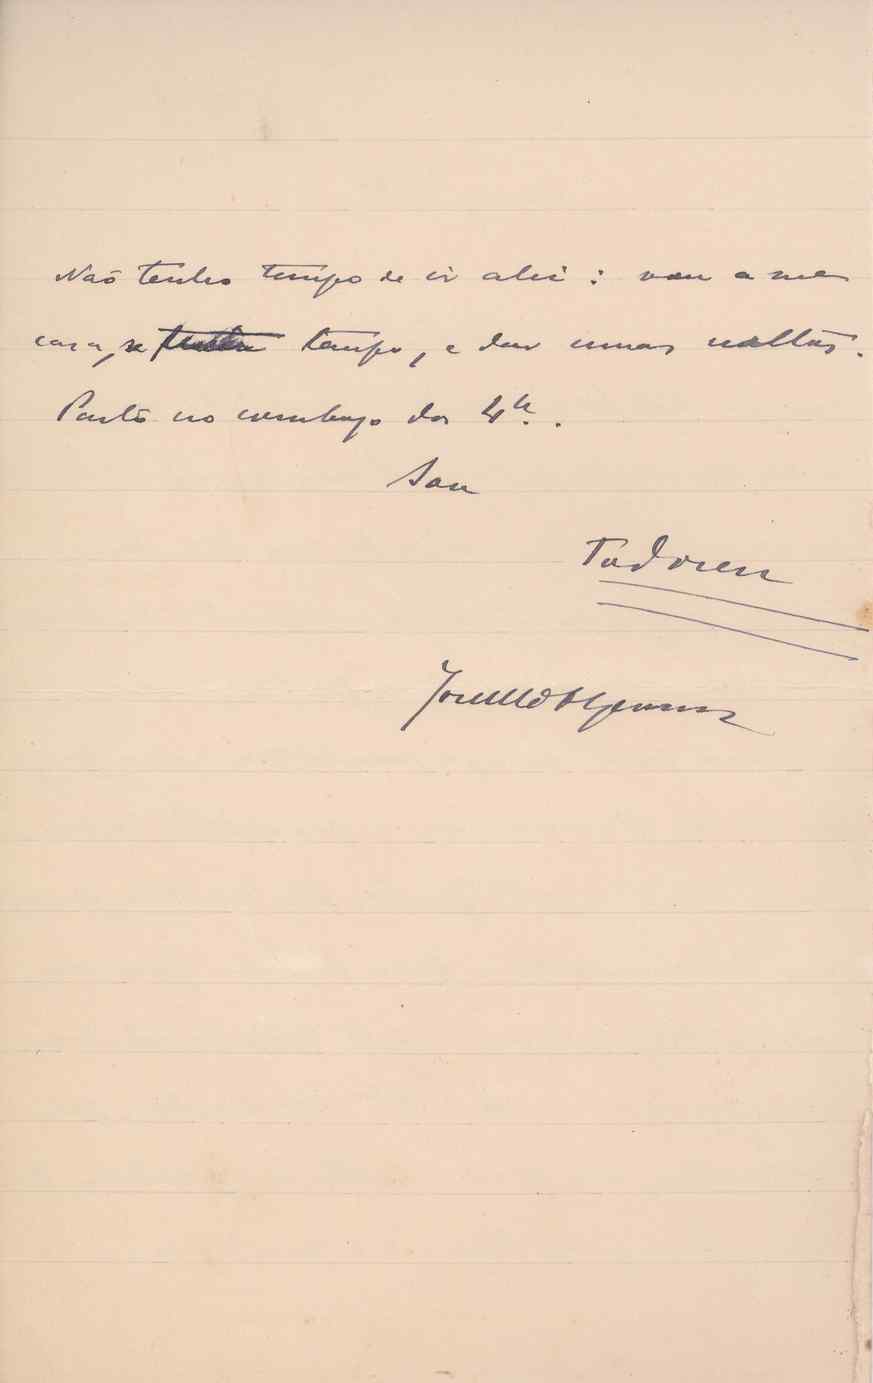 Não tenho tempo de ir ahi: vou a
casa, se tempo, e dar umas voltas.
Parto no comboyo das 4h.
Sou
Todo seu